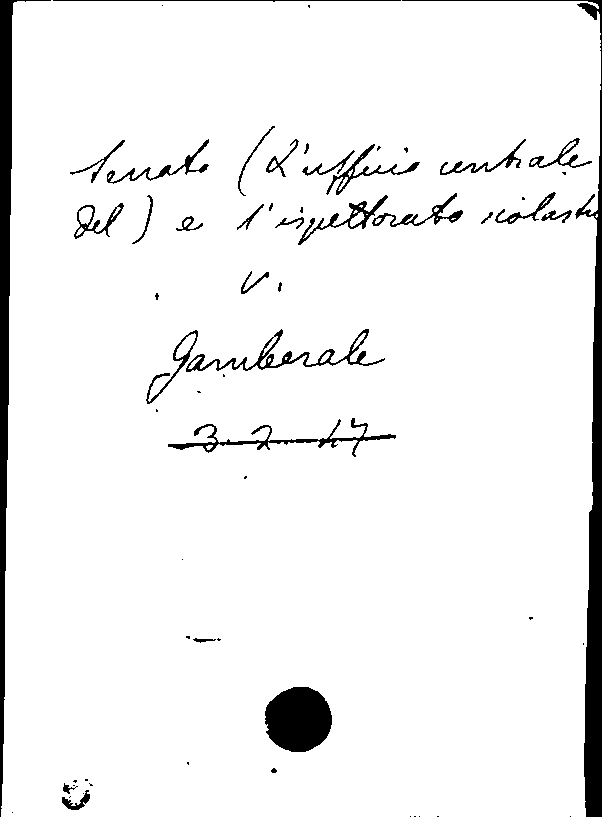 Senato (L'ufficio centrale
del) e l'ispettorato scolasti
v.
Gamberale
3-2-47